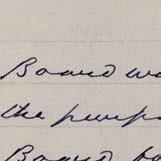 Board wa
the purpo
Board